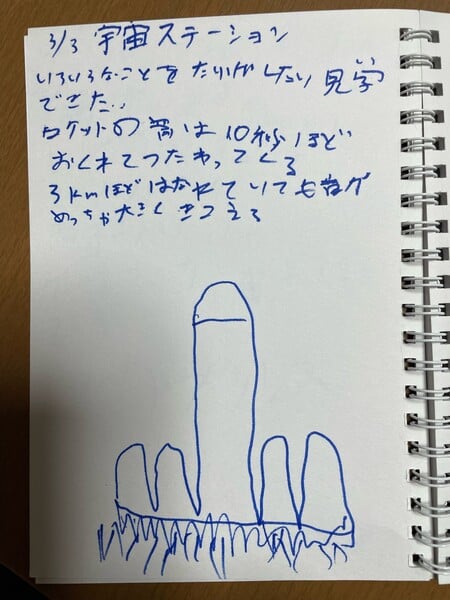 3/3 宇宙ステーション
いろいろなことをたいけんしたい 見学
できた。
ロケットの音は10秒ほど
おくれてつたわってくる
3kmほどはなれていても音が
めっちゃ大きくきこえる